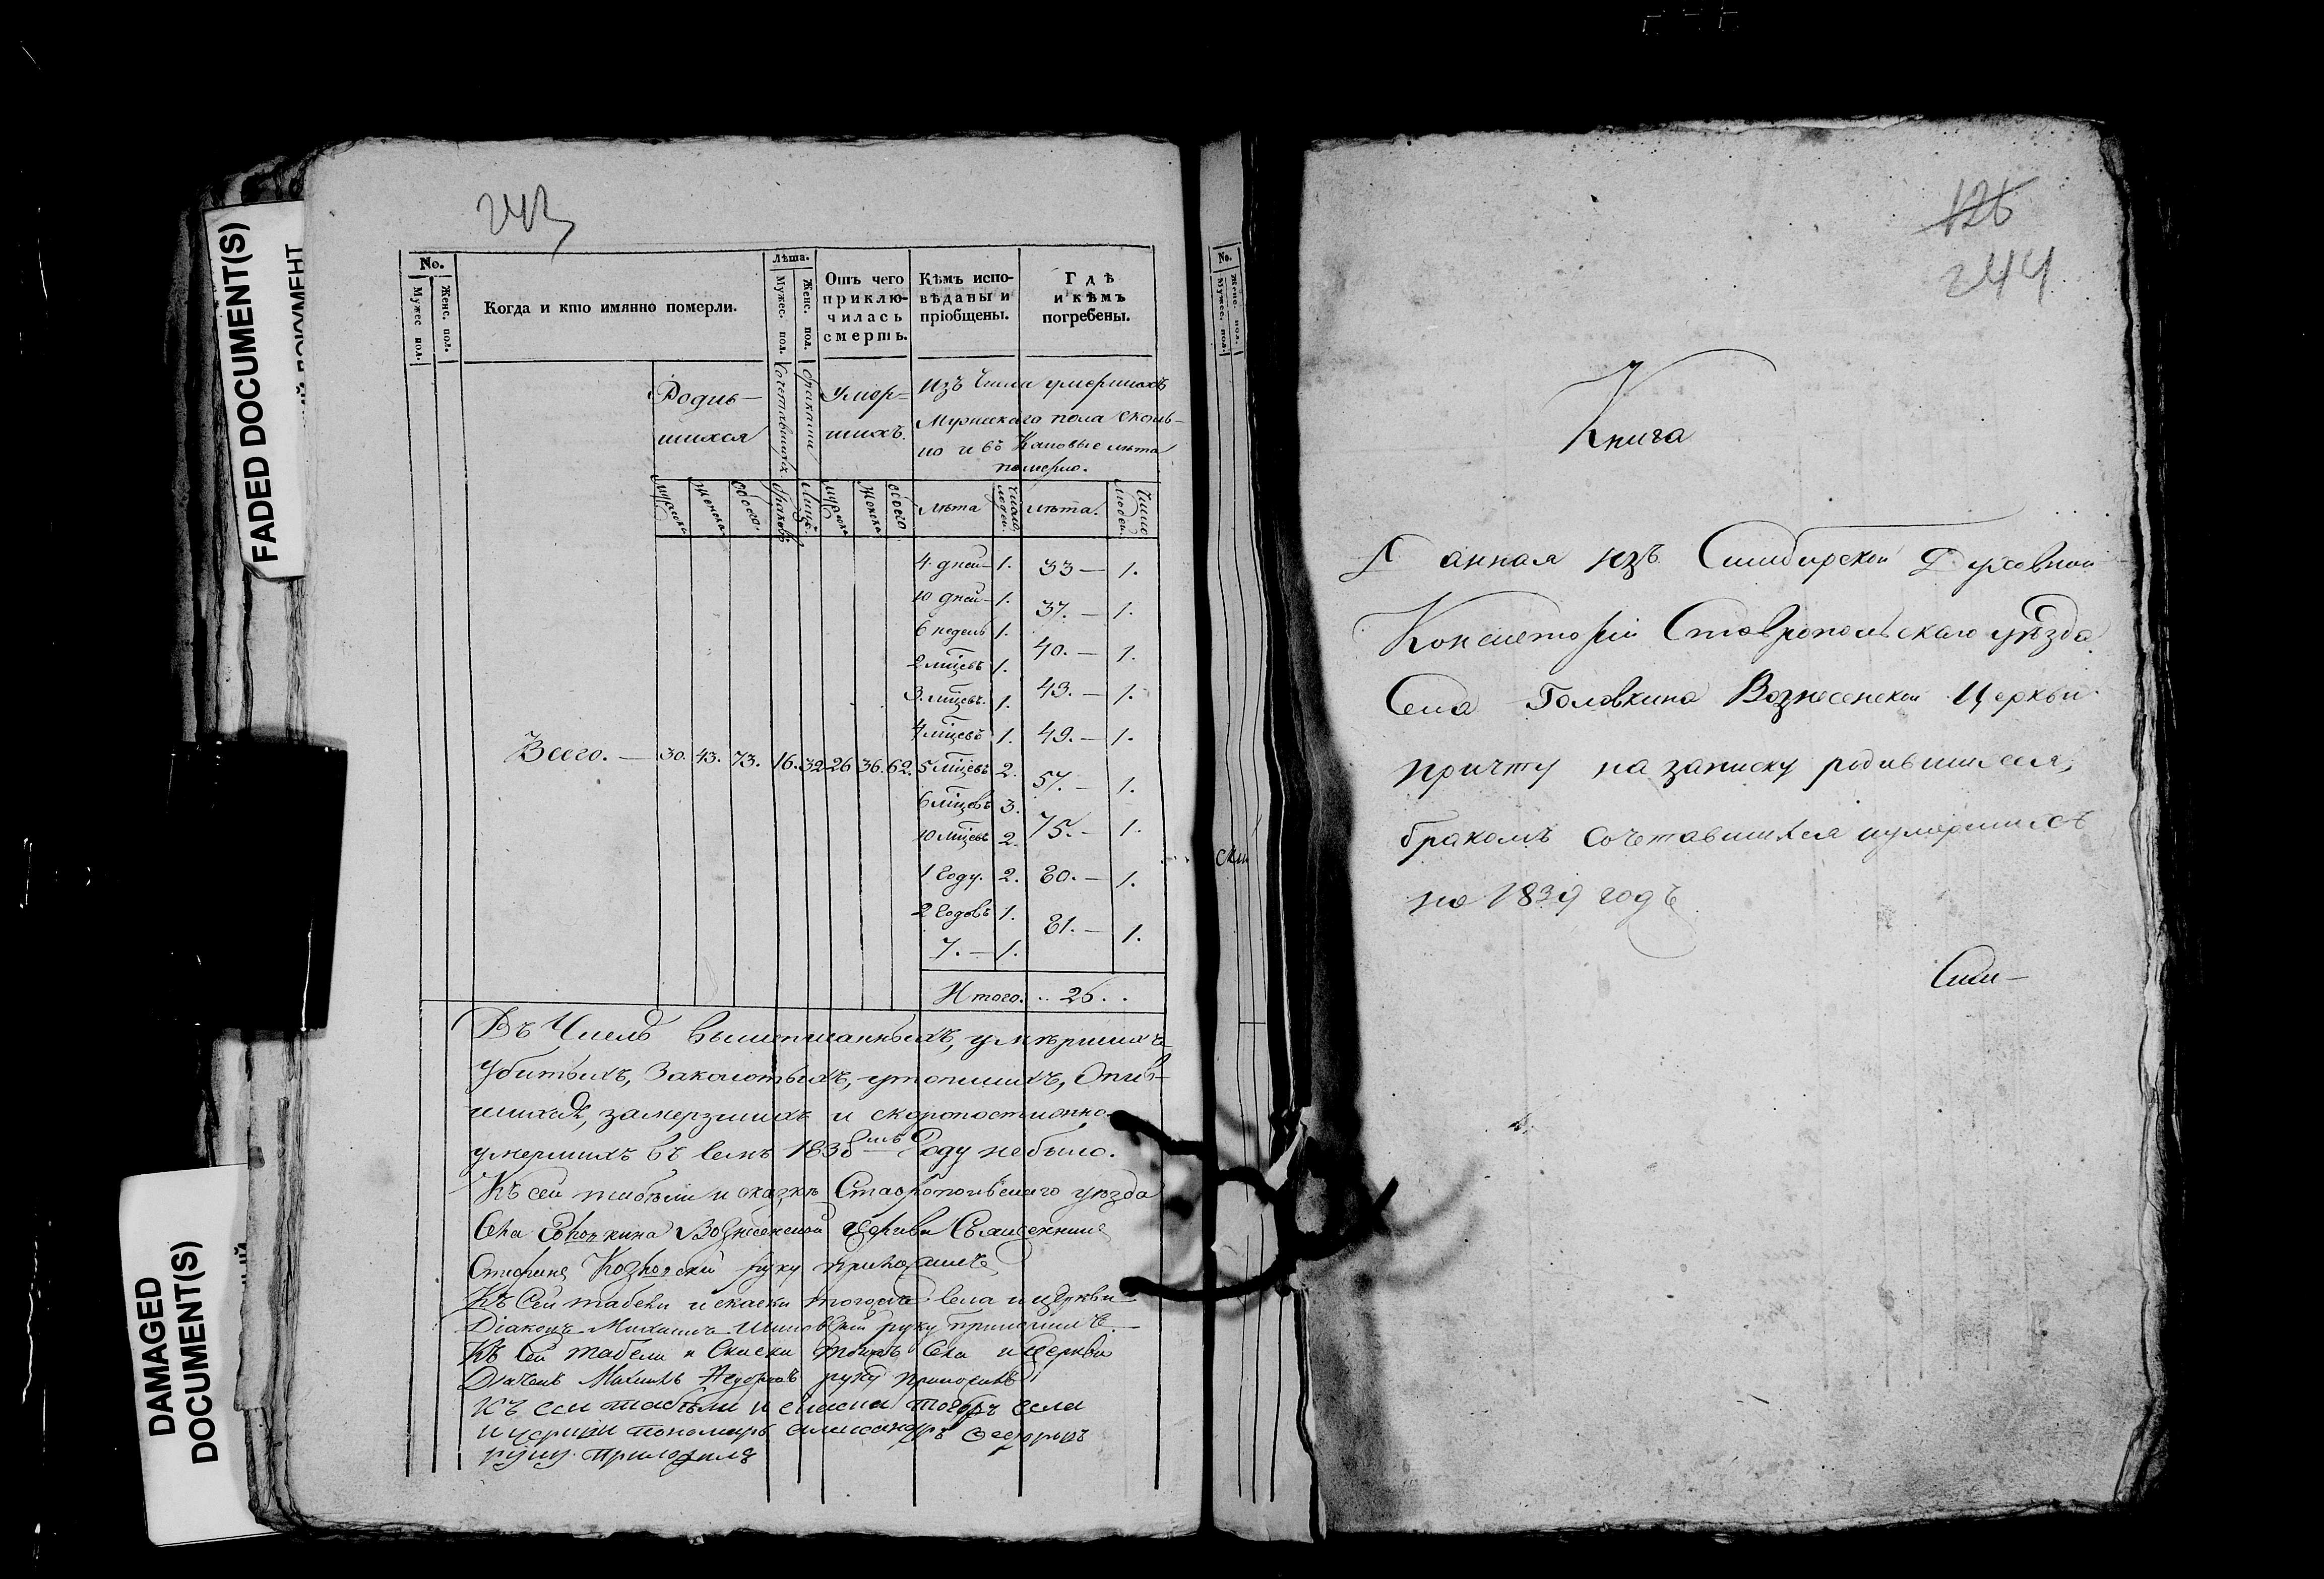 FADED DOCUMENT(S)
DAMAGED
DOCUMENT(S)
243
No.
Мужес пол.
Женс. пол.
Когда и кто имянно померли.
Лѣта.
Мужес. пол.
Женс. пол.
Отъ чего
приклю-
чилась
смерть.
Кѣмъ испо-
вѣданы и
пріобщены.
Гдѣ
и кѣмъ
погребены.
Родив-
шихся
Сочетавшихся
браками
Умер-
шихъ.
Изъ числа умершихъ
Мужескаго пола сколь-
ко и въ каковые лѣта
померло.
мужеска
женска
обоего.
браковъ
лицъ.
мужеска
женска
обоего
лѣта
число людей.
лѣта.
число людей.
4. дней — 1. 33 — 1.
10 дней — 1. 37. — 1.
6 недель 1. 40. — 1.
2 мцевъ 1. 43. — 1.
3. мцевъ. 1. 49. — 1.
4 мцевъ 1. 57. — 1.
5 мцевъ 2. 75. — 1.
6 мцевъ 3. 80. — 1.
10 мцевъ 2. 81. — 1.
1 году. 2.
2 годовъ 1.
7. — 1.
Всего. — 30. 43. 73. 16. 32 26 36. 62.
Итого. .. 26. .
Въ числѣ вышеписанныхъ, умершихъ
убитыхъ, заколотыхъ, утопшихъ, опив-
шихся, замерзшихъ и скоропостижно
умершихъ въ семъ 1838мъ году небыло.
Къ сей табели и сказкѣ Ставропольскаго уѣзда
Села Головкина Вознесенской церкви Священникъ
Стефанъ Козловскій руку приложилъ
Къ сей табели и скаски тогожъ села и церкви
Діаконъ Михаилъ руку приложилъ
Къ сей табели и скаски тогожъ села и церкви
Дьячекъ Михаилъ Федоровъ руку приложилъ
Къ сей табели и скаски тогожъ села
и церкви пономарь александръ Федоровъ
руку приложилъ
No.
Мужес. пол.
Женс. пол.
126
244
Книга
Данная изъ Симбирской Духовной
Консисторіи Ставропольскаго уѣзда
Села Головкина Вознесенской Церкви
причту на записку родившихся,
бракомъ сочетавшихся и умершихъ
на 1839 годъ
Сим-